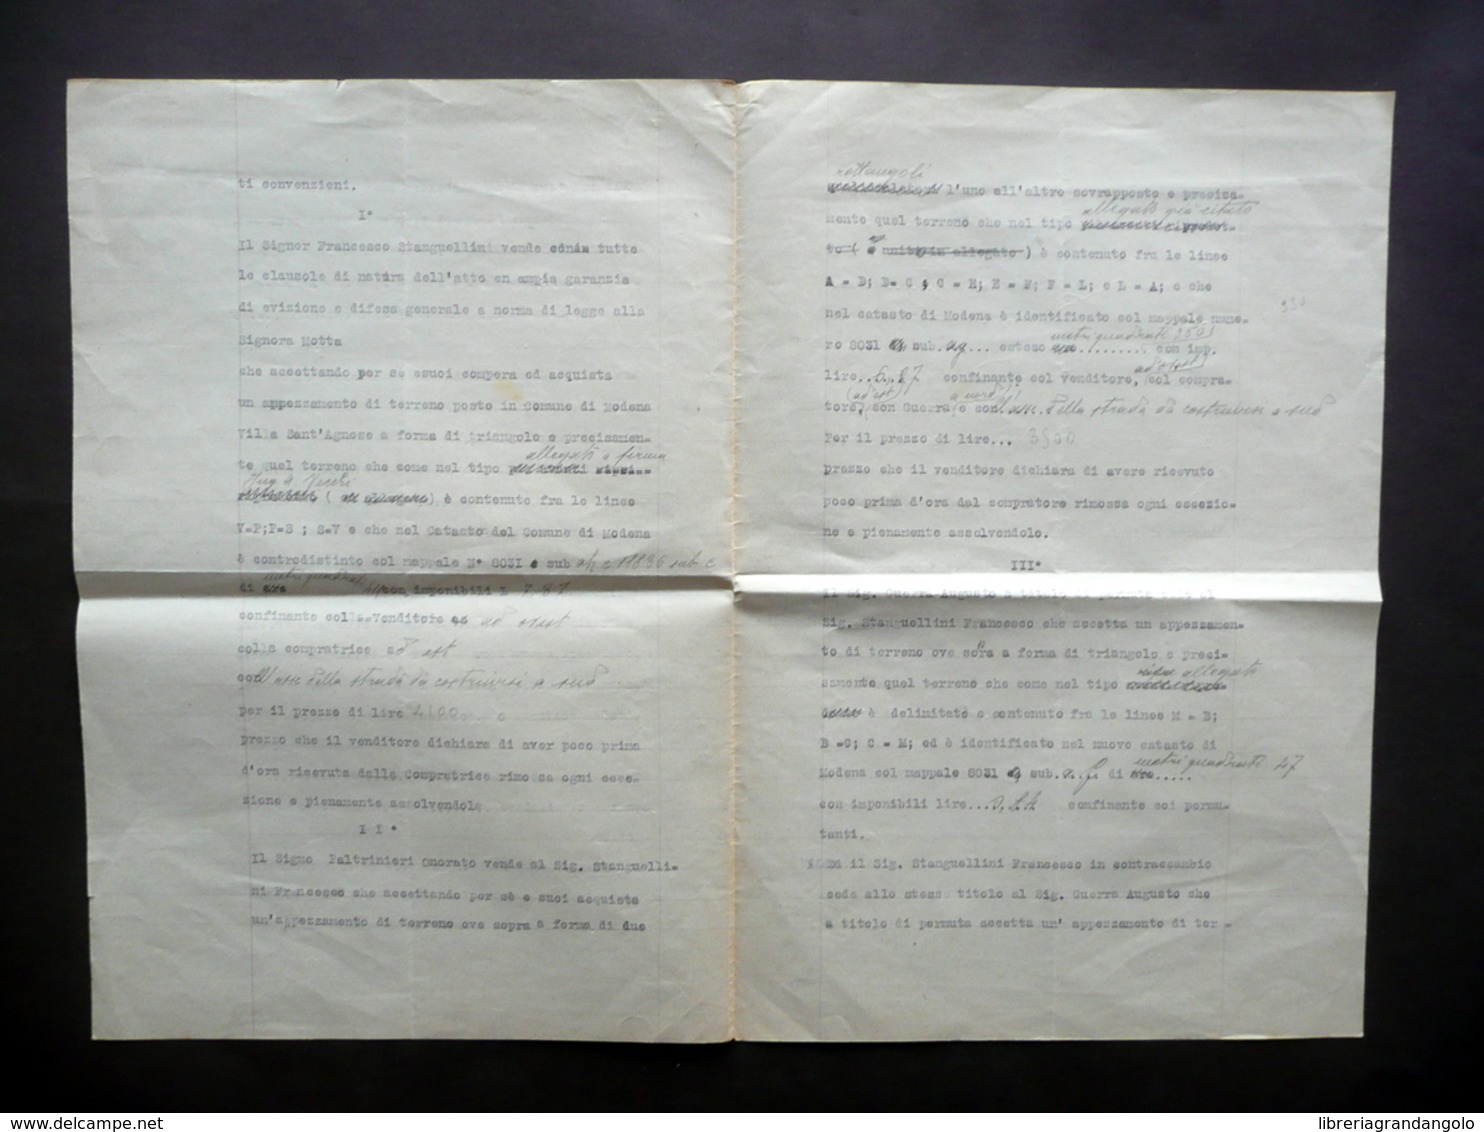 ti convenzioni.
I°
Il Signor Francesco Stanguellini vende con tutte
le clausole di natura dell'atto en ampia garanzia
di evizione e difesa generale a norma di legge alla
Signora Motta
che accettando per se esuoi compera ed acquista
un appezzamento di terreno posto in Comune di Modena
Villa Sant'Agnese a forma di triangolo e precisamen-
allegato a firma
te quel terreno che come nel tipo
Ing
( ) è contenuto fra le linee
V=P;P=S ; S=V e che nel Catasto del Comune di Modena
è controdistinto col mappale N° 8031 e sub ah e 11836 sub c
metri quadrati
di are con imponibili L 7.87
confinante colla Venditore ad ovest
colla compratrice ad est
coll'asse della strada da costruirsi a sud
per il prezzo di lire 4100
prezzo che il venditore dichiara di aver poco prima
d'ora ricevuta dalla Compratrice rimossa ogni ecce-
zione e pienamente assolvendola
I I °
Il Signo Paltrinieri Onorato vende al Sig. Stanguelli-
ni Francesco che accettando per sè e suoi acquista
un'appezzamento di terreno ove sopra a forma di due
rettangoli
l'uno all'altro sovrapposto e precisa-
allegato già citato
mente quel terreno che nel tipo
to ( unito in allegato ) è contenuto fra le linee
A = D; D= C ; C = E; E = F; F = L; e L = A; e che
nel catasto di Modena è identificato col mappale nume-
metri quadrati 3501
ro 8031 sub. ag... esteso ......... con imp.
ad ovest
lire.. 6.27 confinante col venditore, col compra-
(ad est) a nord
tore, con Guerra e con l'asse della strada da costruirsi a sud
Per il prezzo di lire... 3500
prezzo che il venditore dichiara di avere ricevuto
poco prima d'ora del compratore rimossa ogni eccezio-
ne e pienamente assolvendolo.
III°
Il Sig. Guerra Augusto a titolo di permuta al
Sig. Stanguellini Francesco che accetta un appezzamen-
to di terreno ove sopra a forma di triangolo e preci-
allegato
samente quel terreno che come nel tipo
è delimitato e contenuto fra le linee M = B;
B =C; C = M; ed è identificato nel nuovo catasto di
metri quadrati 47
Modena col mappale 8031 sub. di are.....
con imponibili lire... confinante coi permu-
tanti.
il Sig. Stanguellini Francesco in contraccambio
cede allo stesso titolo al Sig. Guerra Augusto che
a titolo di permuta accetta un' appezzamento di ter -
delcampe.net
libreriagrandangolo